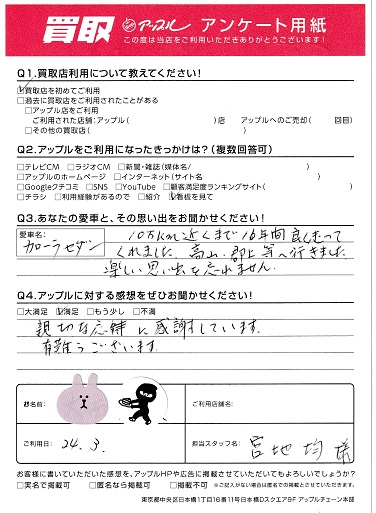 買取 アップル アンケート用紙
この度は当店をご利用いただきありがとうございます！
Q1.買取店利用について教えてください！
☑買取店を初めてご利用
□過去に買取店をご利用されたことがある
□アップル店をご利用
ご利用された店舗：アップル( )店 アップルへのご売却( 回目)
□その他の買取店( )
Q2.アップルをご利用になったきっかけは？(複数回答可)
□テレビCM □ラジオCM □新聞・雑誌(媒体名/ )
□アップルのホームページ □インターネット(サイト名 )
□Googleクチコミ □SNS □YouTube □顧客満足度ランキングサイト( )
□チラシ □利用経験があるので □紹介 ☑看板を見て
Q3.あなたの愛車と、その思い出をお聞かせください！
愛車名：
カローラセダン
10万km近くまで16年間良く走って
くれました。高山、郡上等へ行きました
楽しい思い出を忘れません。
Q4.アップルに対する感想をぜひお聞かせください！
□大満足 ☑満足 □もう少し □不満
親切な応待に感謝しています。
有難うございます。
お名前：
ご利用店舗名：
ご利用日： 24.3.
担当スタッフ名： 宮地 均 様
お客様に書いていただいた感想を、アップルHPや広告に掲載させていただいてもよろしいでしょうか？
□実名で掲載可 □匿名なら掲載可 □掲載不可 ※ご記入がない場合は匿名での掲載とさせていただきます。
東京都中央区日本橋1丁目16番11号日本橋Dスクエア9F アップルチェーン本部